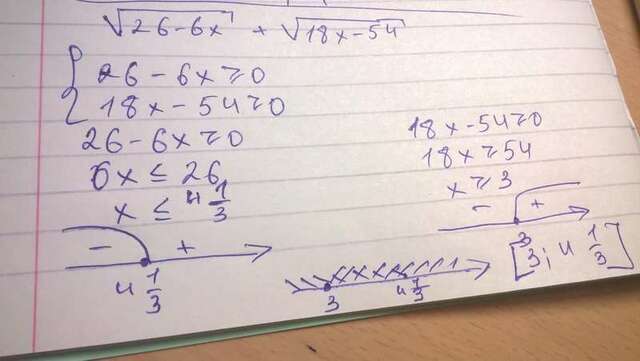 √26-6x + √18x-54
{ 26-6x≥0
18x-54≥0
26-6x≥0
6x≤26
x≤4 1/3
18x-54≥0
18x≥54
x≥3
- +
4 1/3
- +
3
3 4 1/3
[3; 4 1/3]